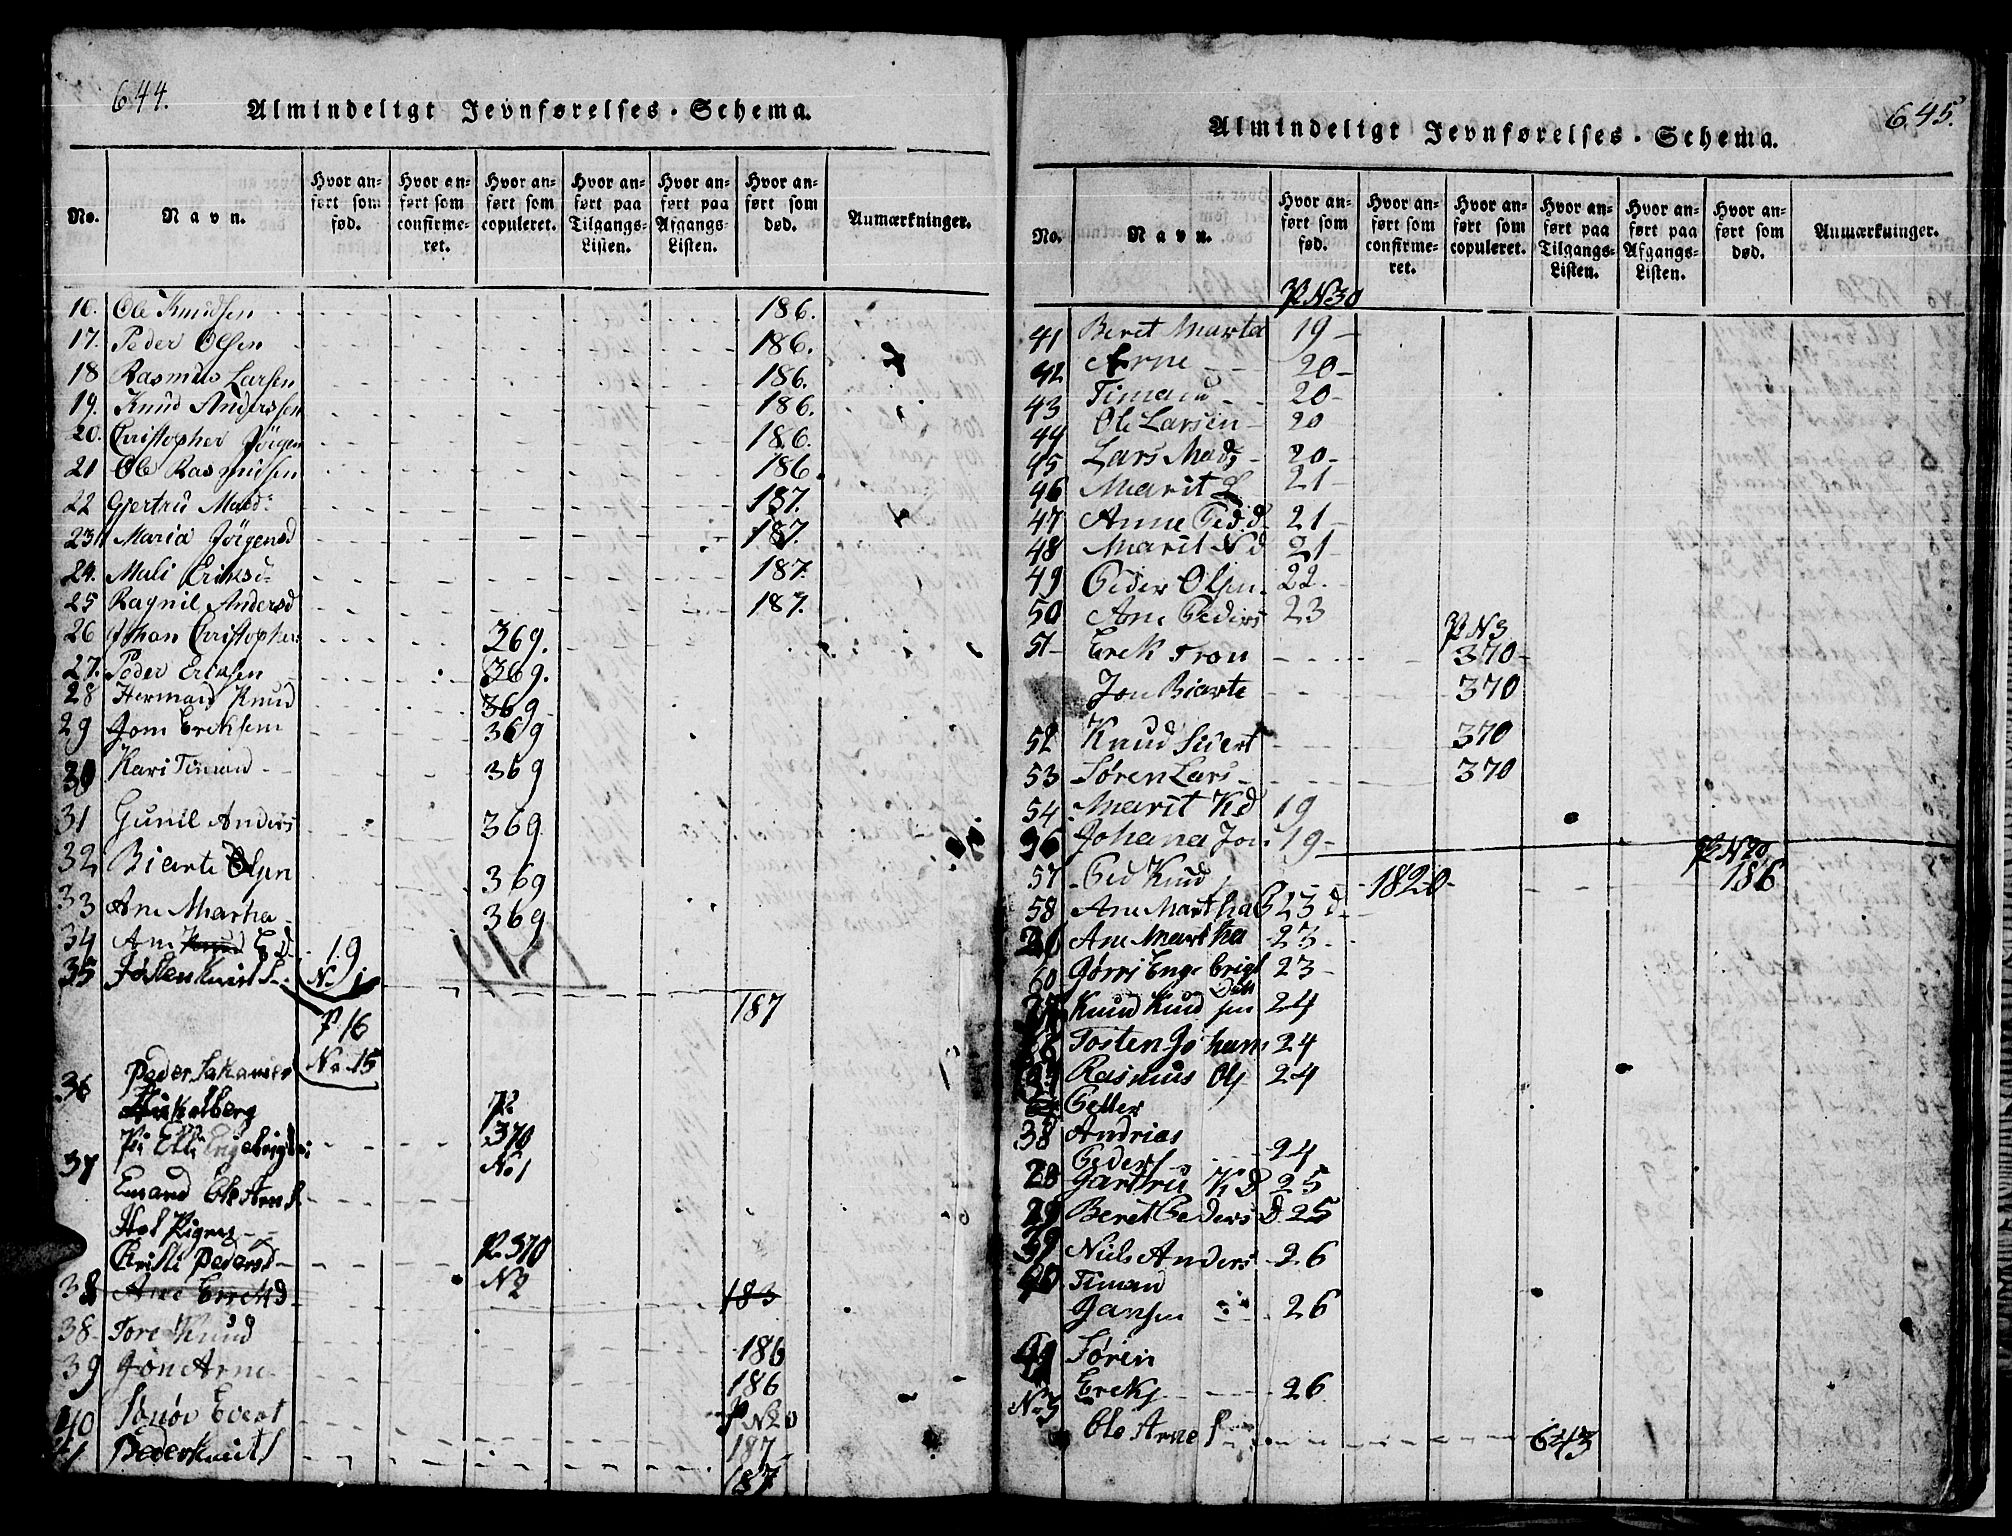 644.
Almindeligt Jevnførelses-Schema.
No.
Navn.
Hvor anført som fød.
Hvor anført som confirmeret.
Hvor anført som copuleret.
Hvor anført paa Tilgangs-Listen.
Hvor anført paa Afgangs-Listen.
Hvor anført som død.
Anmærkninger.
16. Ole Knudsen 186.
17. Peder Olsen 186.
18 Rasmus Larsen 186.
19. Knud Anderssen 186.
20. Christopher Jörgen 186.
21 Ole Rasmusen 186.
22 Gjertru Mad: 187.
23 Maria Jörgensd 187.
24. Mali Eriksd 187.
25 Ragnil Andersd 187.
26 Johan Christophers 369.
27. Peder Eriksen 369.
28 Herman Knud 369
29 Jom Ereksen 369
30 Kari Timand 369
31 Gunil Anders 369.
32 Biarte Olsen 369
33 Ane Martha 369
34 Ane Knud E d 19
35 Josten Knut S. N. 1 187
P 16
36 Peder N. 15
P
370
37 N. 1
Ole Arn S.
Christi Pedersd P. 370
38 Ane Errekd N 2 183
38 Tore Knud 186
39 Jon Arne 186
40 Evert P N 20
41 Peder Knut S 187
187
645.
Almindeligt Jevnførelses-Schema.
No.
Navn.
Hvor anført som fød.
Hvor anført som confirmeret.
Hvor anført som copuleret.
Hvor anført paa Tilgangs-Listen.
Hvor anført paa Afgangs-Listen.
Hvor anført som død.
Anmærkninger.
P N 30
41 Beret Marta 19
42 Arne 20
43 Timand 20
44 Ole Larsen 20
45 Lars Mads 20
46 Marit L 21
47 Anne Ped. d. 21
48 Marit N d 21
49 Peder Olsen 22.
50 Ane Peders 23
P N 3
51 Erek Tron 370
Jon Biarte 370
52 Knud Sivert 370
53 Søren Lars 370
54 Marit K d 19
56 Johana Jon 19
P N 20
57 Ped Knud 1820 186
58 Ane Martha 23
Ane Martha 23
60 Gjørri Engebrigt 23
Datt
Knud Knudsen 24
Tosten Johans 24
Rasmus Ols 24
Petter
38 Andrias
Peders 24
28 Gartru K D 25
29 Beret Peders D. 25
39 Niels Anders 26
40 Timand
Jansen 26
41 Søren
Ereks 26
No 3
Ole Arne S 643